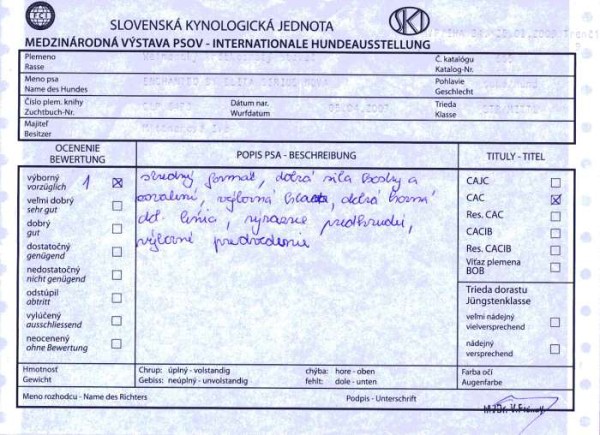 FCI
SLOVENSKÁ KYNOLOGICKÁ JEDNOTA
SKJ
MEDZINÁRODNÁ VÝSTAVA PSOV - INTERNATIONALE HUNDEAUSSTELLUNG
Plemeno
Rasse
Č. katalógu
Katalog-Nr.
Meno psa
Name des Hundes
Pohlavie
Geschlecht
Číslo plem. knihy
Zuchtbuch-Nr.
Dátum nar.
Wurfdatum
Trieda
Klasse
Majiteľ
Besitzer
OCENENIE
BEWERTUNG
POPIS PSA - BESCHREIBUNG
TITULY - TITEL
výborný 1
vorzüglich
veľmi dobrý
sehr gut
dobrý
gut
dostatočný
genügend
nedostatočný
nicht genügend
odstúpil
abtritt
vylúčený
ausschliessend
neocenený
ohne Bewertung
stredný formát, dobrá sila kostry a
osvalení, výborná hlava, dobrá horná
dol. línia, výrazné predhrudí,
výborné predvedenie
CAJC
CAC
Res. CAC
CACIB
Res. CACIB
Víťaz plemena
BOB
Trieda dorastu
Jüngstenklasse
veľmi nádejný
vielversprechend
nádejný
versprechend
Hmotnosť
Gewicht
Chrup: úplný - volstandig
Gebiss: neúplný - unvolstandig
chýba: hore - oben
fehlt: dole - unten
Farba očí
Augenfarbe
Meno rozhodcu - Name des Richters
Podpis - Unterschrift